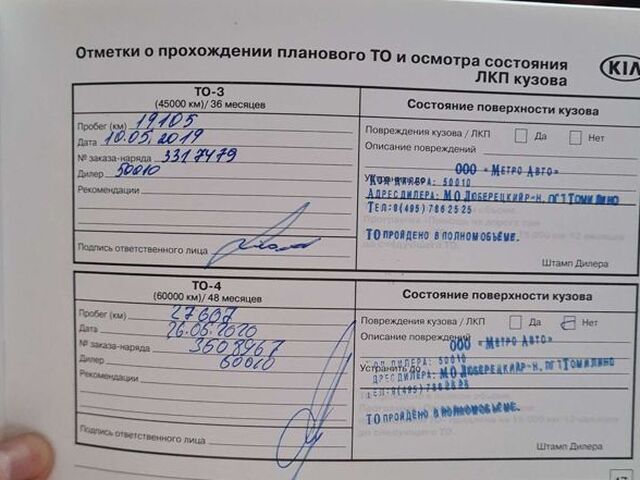 Отметки о прохождении планового ТО и осмотра состояния
ЛКП кузова
KIA
ТО-3
(45000 км)/ 36 месяцев
Состояние поверхности кузова
Пробег (км) 19105
Дата 10.05.2019
№ заказа-наряда 3317479
Дилер 50010
Рекомендации
Подпись ответственного лица
Повреждения кузова / ЛКП Да Нет
Описание повреждений
ООО «Метро Авто»
Код дилера: 50010
Адрес дилера: МО Люберецкий р-н, пгт Томилино
Тел-8(495)7862525
ТО пройдено в полном объёме.
Штамп Дилера
ТО-4
(60000 км)/ 48 месяцев
Состояние поверхности кузова
Пробег (км) 27607
Дата 26.06.2020
№ заказа-наряда 3608967
Дилер 50010
Рекомендации
Подпись ответственного лица
Повреждения кузова / ЛКП Да Нет
Описание
ООО «Метро Авто»
Устранить до
Код дилера: 50010
Адрес дилера: МО Люберецкий р-н, пгт Томилино
Тел-8(495)7862525
ТО пройдено в полном объёме.
Штамп Дилера